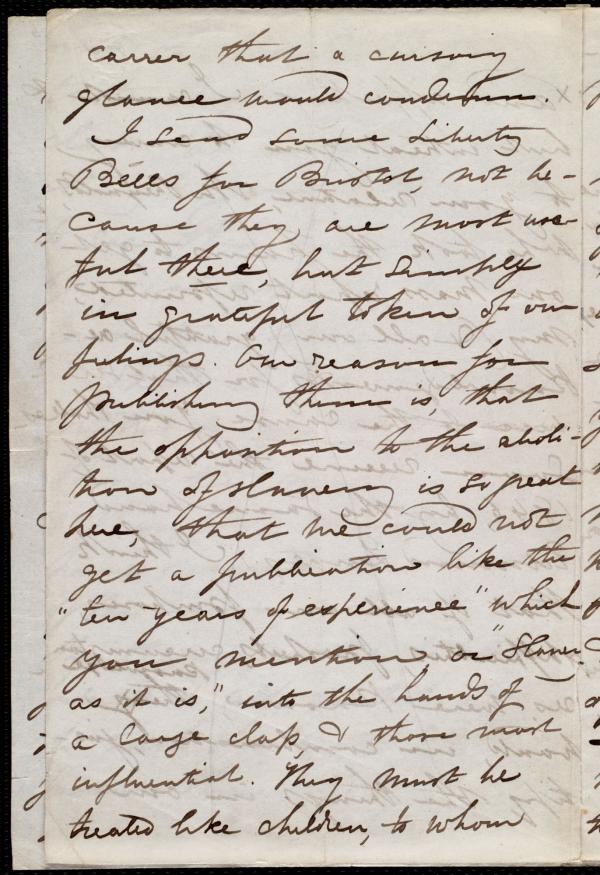 career that a cursory
glance would condemn.
I send some Liberty
Bells for Bristol, not be-
cause they are most use-
ful there, but simply
in grateful token of our
feelings. Our reason for
publishing them is, that
the opposition to the aboli-
tion of slavery is so great
here, that we could not
get a publication like the
"ten years of experience" which
you mention, or "Slavery
as it is," into the hands of
a large class, & those most
influential. They must be
treated like children, to whom